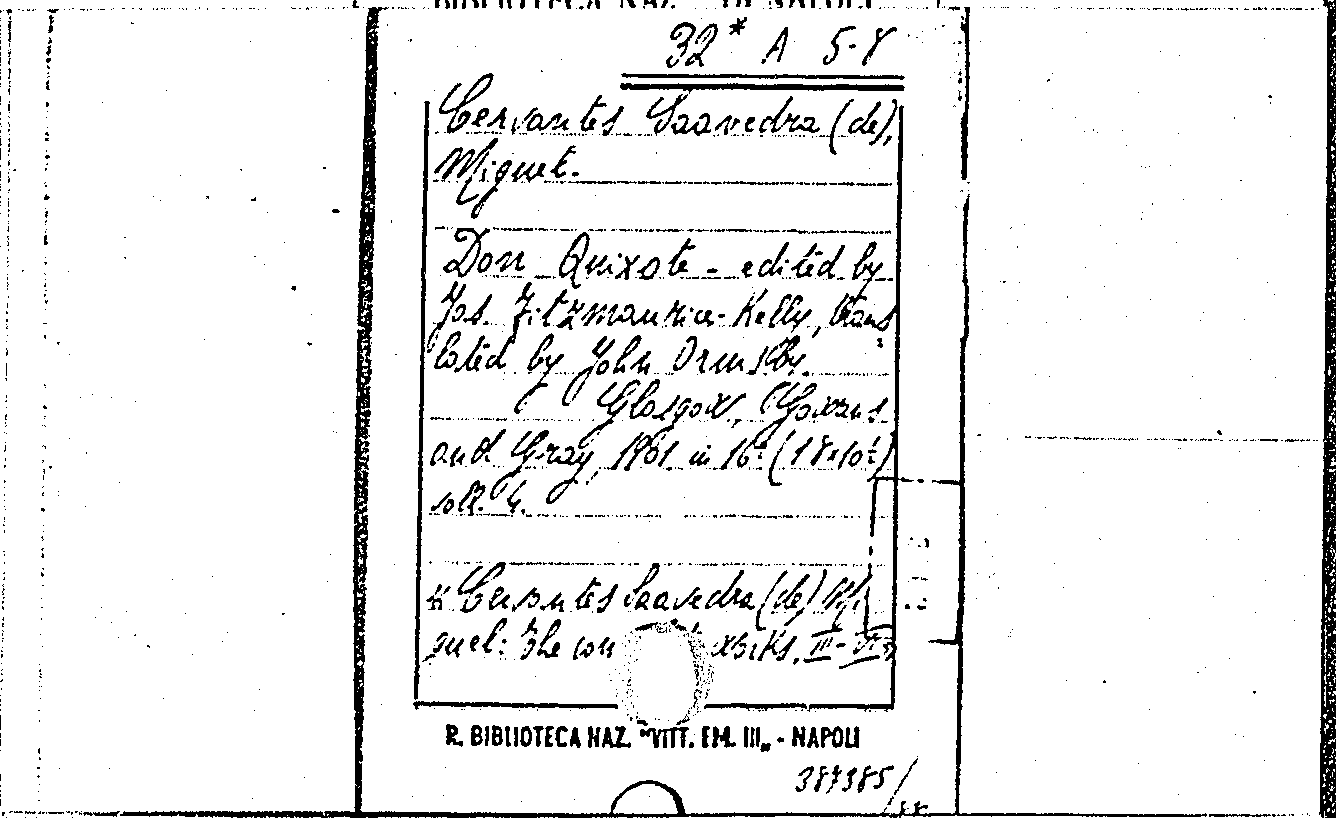 BIBLIOTECA NAZ. DI NAPOLI
32* A 5-8
Cervantes Saavedra (de),
Miguel.
Don Quixote - edited by
Jas. Fitzmaurice-Kelly, trans
lated by John Ormsby.
Glasgow, Gowans
and Gray, 1901 in 16° (18x10½)
voll. 4.
*Cervantes Saavedra (de) Mi
guel: The works. III-VI
R. BIBLIOTECA NAZ. "VITT. EM. III„ - NAPOLI
387385/
88